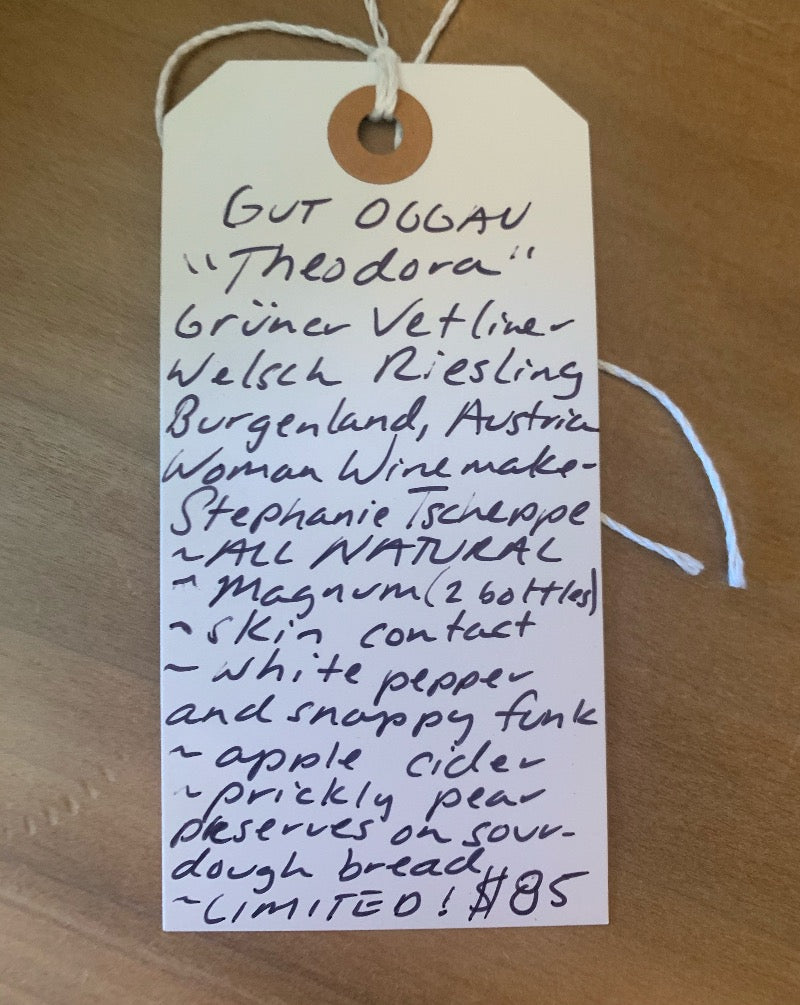 GUT OGGAU
"Theodora"
Grüner Vetliner
Welsch Riesling
Burgenland, Austria
Woman Winemaker
Stephanie Tscheppe
~ALL NATURAL
~ Magnum (2 bottles)
~ skin contact
~ white pepper
and snappy funk
~ apple cider
~ prickly pear
preserves on sour-
dough bread
~LIMITED! $85